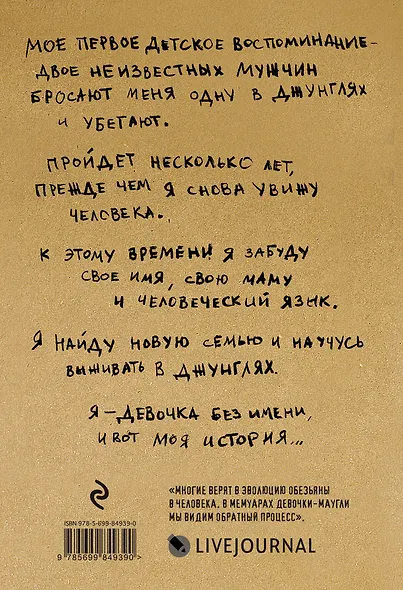 МОЕ ПЕРВОЕ ДЕТСКОЕ ВОСПОМИНАНИЕ–
ДВОЕ НЕИЗВЕСТНЫХ МУЖЧИН
БРОСАЮТ МЕНЯ ОДНУ В ДЖУНГЛЯХ
И УБЕГАЮТ.
ПРОЙДЕТ НЕСКОЛЬКО ЛЕТ,
ПРЕЖДЕ ЧЕМ Я СНОВА УВИЖУ
ЧЕЛОВЕКА.
К ЭТОМУ ВРЕМЕНИ Я ЗАБУДУ
СВОЕ ИМЯ, СВОЮ МАМУ
И ЧЕЛОВЕЧЕСКИЙ ЯЗЫК.
Я НАЙДУ НОВУЮ СЕМЬЮ И НАУЧУСЬ
ВЫЖИВАТЬ В ДЖУНГЛЯХ.
Я – ДЕВОЧКА БЕЗ ИМЕНИ,
И ВОТ МОЯ ИСТОРИЯ...
«МНОГИЕ ВЕРЯТ В ЭВОЛЮЦИЮ ОБЕЗЬЯНЫ
В ЧЕЛОВЕКА. В МЕМУАРАХ ДЕВОЧКИ-МАУГЛИ
МЫ ВИДИМ ОБРАТНЫЙ ПРОЦЕСС».
LIVEJOURNAL
ISBN 978-5-699-84939-0
9 785699 849390 >